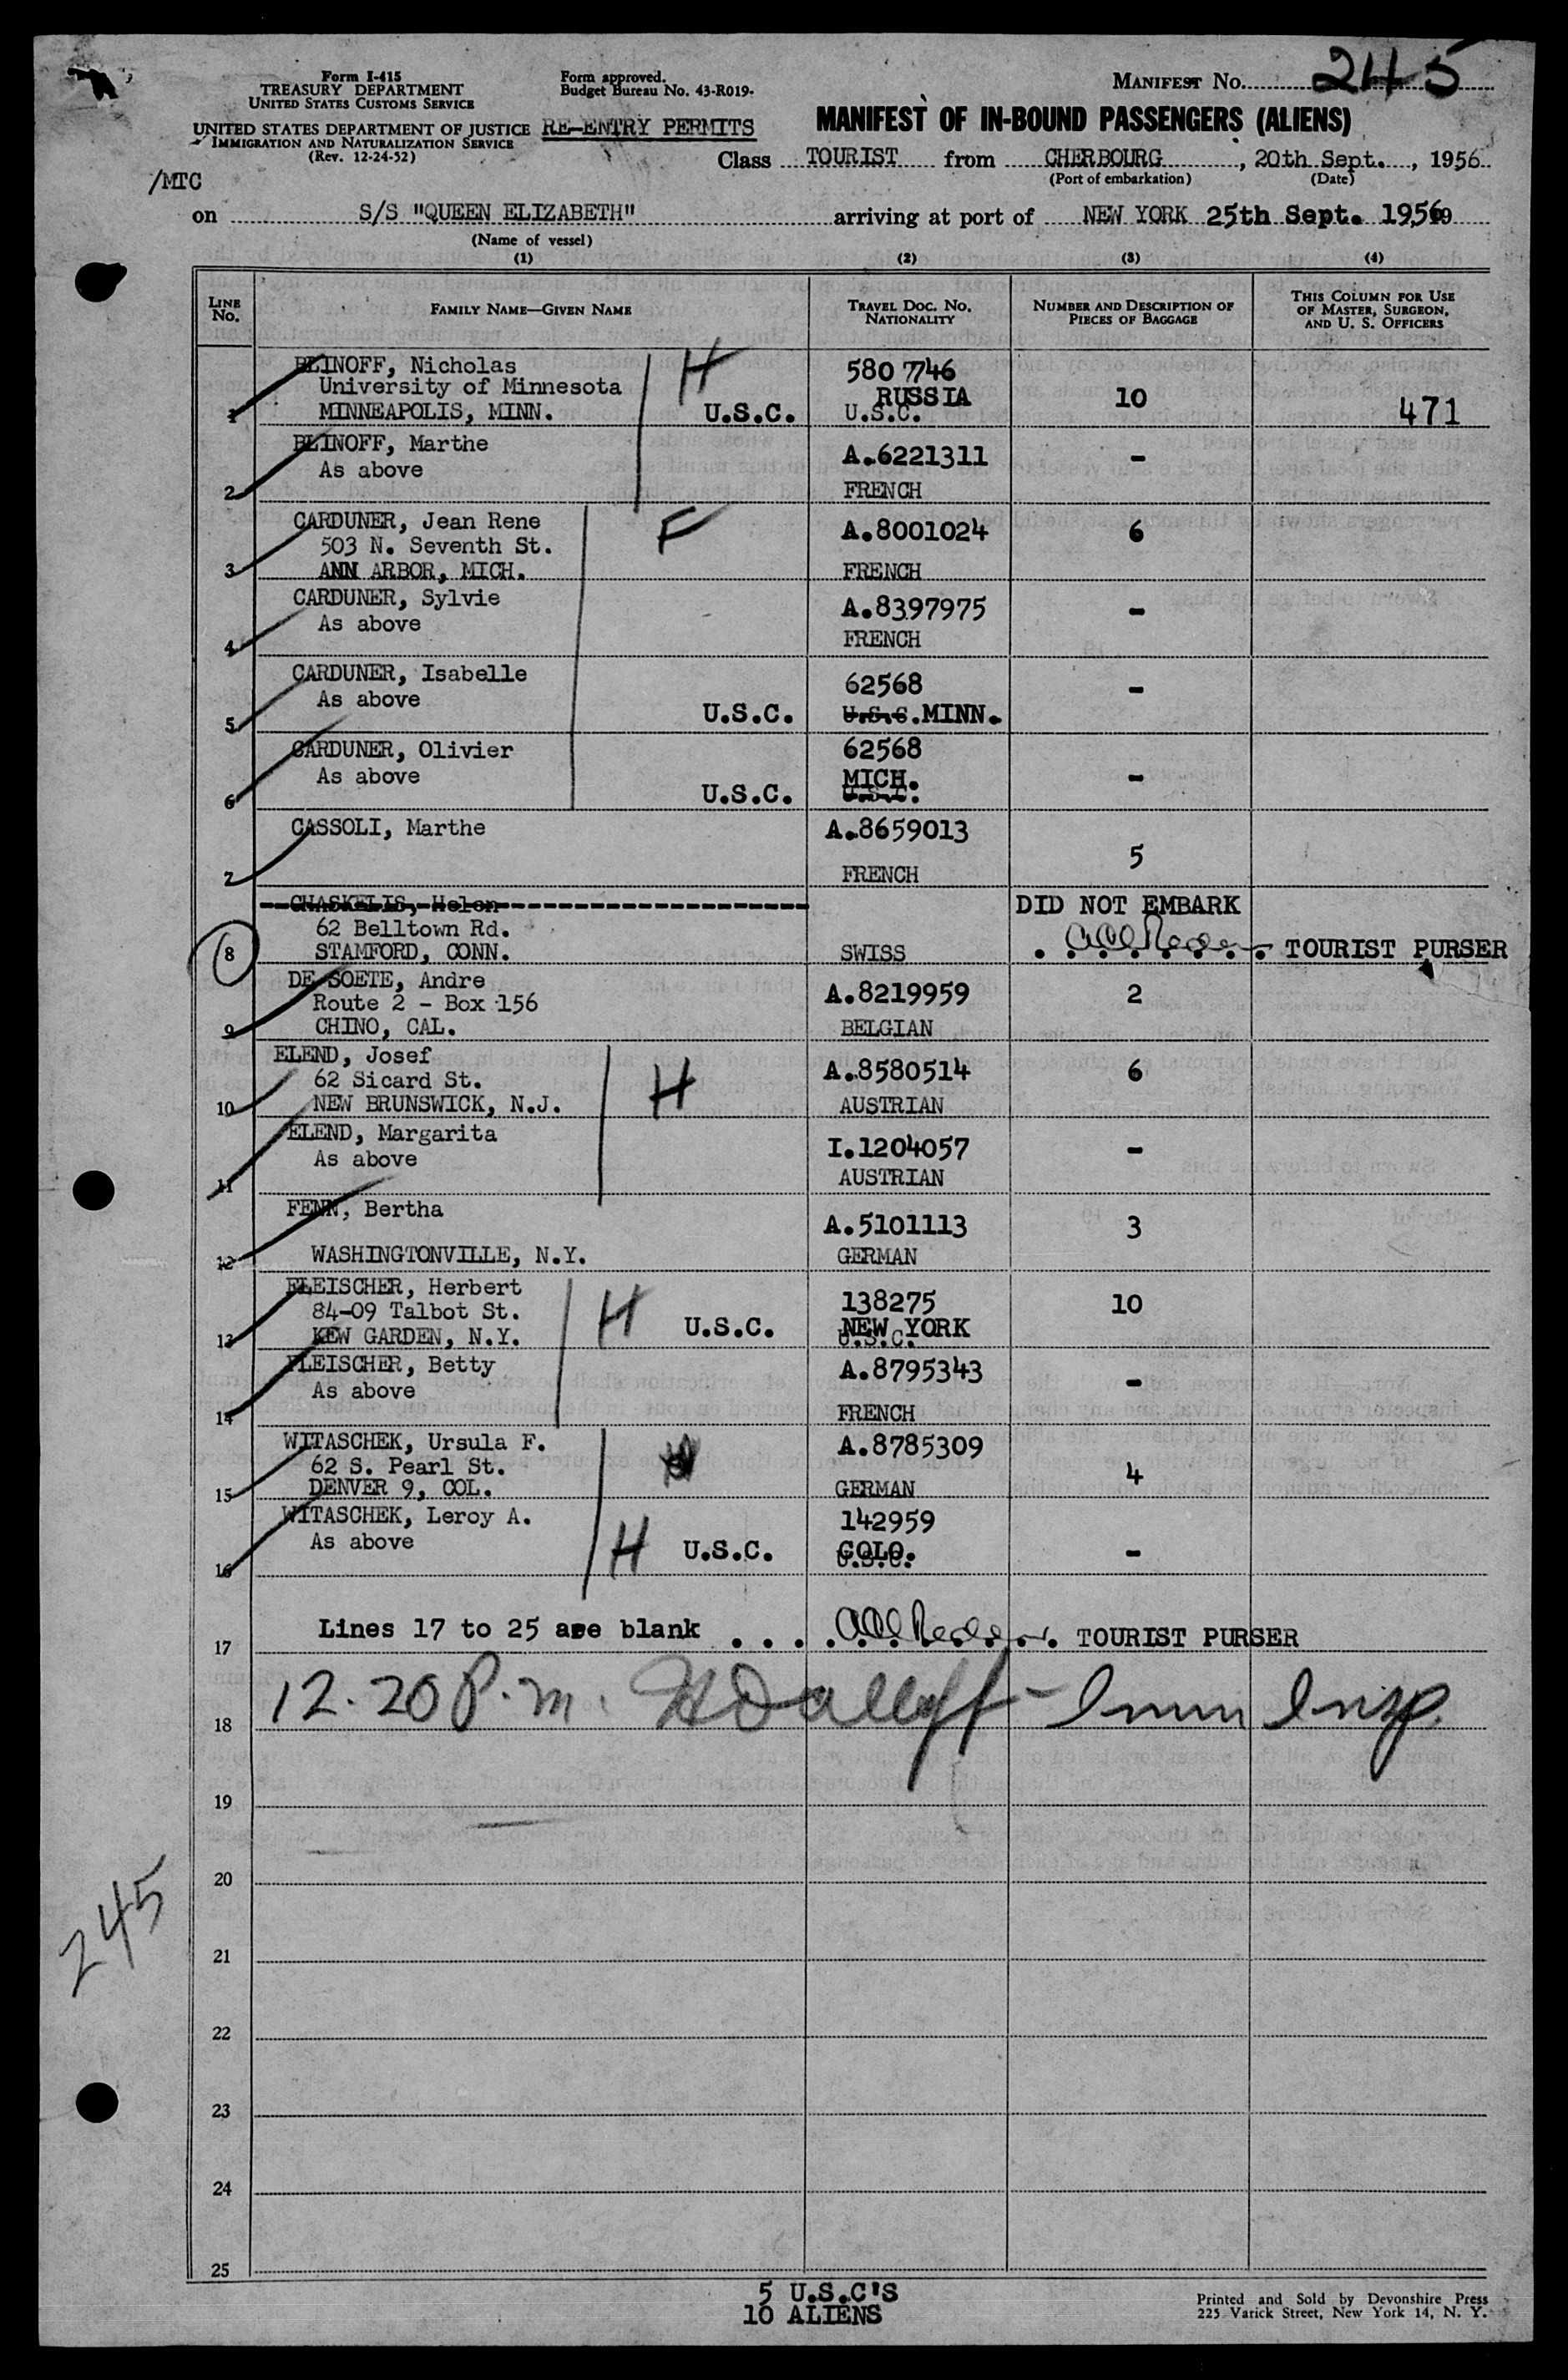 Form I-415
TREASURY DEPARTMENT
UNITED STATES CUSTOMS SERVICE
UNITED STATES DEPARTMENT OF JUSTICE
IMMIGRATION AND NATURALIZATION SERVICE
(Rev. 12-24-52)
Form approved.
Budget Bureau No. 43-R019-
RE-ENTRY PERMITS
MANIFEST No. 245
MANIFEST OF IN-BOUND PASSENGERS (ALIENS)
Class TOURIST from CHERBOURG, 20th Sept., 1956
(Port of embarkation) (Date)
/MTC
on S/S "QUEEN ELIZABETH" arriving at port of NEW YORK 25th Sept. 1956
(Name of vessel)
(1) (2) (3) (4)
LINE No. FAMILY NAME—GIVEN NAME TRAVEL DOC. No. NATIONALITY NUMBER AND DESCRIPTION OF PIECES OF BAGGAGE THIS COLUMN FOR USE OF MASTER, SURGEON, AND U. S. OFFICERS
BLINOFF, Nicholas H 580 7746
University of Minnesota RUSSIA 10
1 MINNEAPOLIS, MINN. U.S.C. U.S.C. 471
BLINOFF, Marthe A.6221311 -
As above
2 FRENCH
CARDUNER, Jean Rene F A.8001024 6
503 N. Seventh St.
3 ANN ARBOR, MICH. FRENCH
CARDUNER, Sylvie A.8397975 -
As above
4 FRENCH
CARDUNER, Isabelle 62568 -
As above
5 U.S.C. U.S.C. MINN.
CARDUNER, Olivier 62568
As above MICH. -
6 U.S.C. U.S.C.
CASSOLI, Marthe A.8659013
5
7 FRENCH
CHASKELIS, Helen DID NOT EMBARK
62 Belltown Rd.
8 STAMFORD, CONN. SWISS TOURIST PURSER
DE SOETE, Andre A.8219959 2
Route 2 - Box 156
9 CHINO, CAL. BELGIAN
ELEND, Josef A.8580514 6
62 Sicard St. H
10 NEW BRUNSWICK, N.J. AUSTRIAN
ELEND, Margarita I.1204057 -
As above
11 AUSTRIAN
FENN, Bertha A.5101113 3
12 WASHINGTONVILLE, N.Y. GERMAN
FLEISCHER, Herbert 138275 10
84-09 Talbot St. H U.S.C. NEW YORK
13 KEW GARDEN, N.Y. U.S.C.
FLEISCHER, Betty A.8795343 -
As above
14 FRENCH
WITASCHEK, Ursula F. A.8785309
62 S. Pearl St. 4
15 DENVER 9, COL. GERMAN
WITASCHEK, Leroy A. 142959
As above H U.S.C. COLO. -
16 U.S.C.
17 Lines 17 to 25 are blank TOURIST PURSER
18 12.20 P.m. Imm Insp.
19
20
245
21
22
23
24
25
5 U.S.C'S
10 ALIENS
Printed and Sold by Devonshire Press
225 Varick Street, New York 14, N. Y.